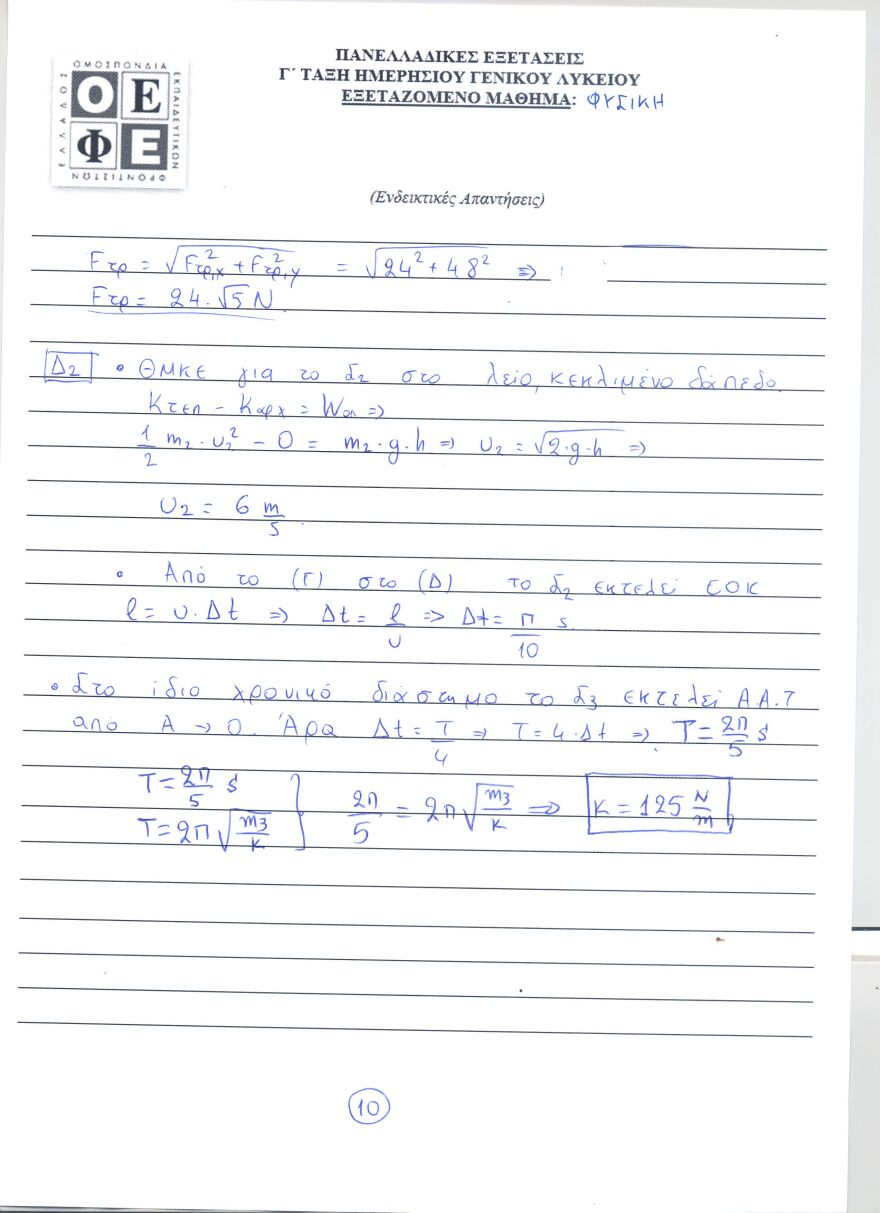 ΟΜΟΣΠΟΝΔΙΑ
ΕΚΠΑΙΔΕΥΤΙΚΩΝ
ΦΡΟΝΤΙΣΤΩΝ
ΕΛΛΑΔΟΣ
Ο Ε
Φ Ε
ΠΑΝΕΛΛΑΔΙΚΕΣ ΕΞΕΤΑΣΕΙΣ
Γ΄ ΤΑΞΗ ΗΜΕΡΗΣΙΟΥ ΓΕΝΙΚΟΥ ΛΥΚΕΙΟΥ
ΕΞΕΤΑΖΟΜΕΝΟ ΜΑΘΗΜΑ: ΦΥΣΙΚΗ
(Ενδεικτικές Απαντήσεις)
Fτρ = √(Fτρ,x² + Fτρ,y²) = √(24² + 48²) ⇒
Fτρ = 24·√5 N
Δ2 • ΘΜΚΕ για το Σ₂ στο λείο, κεκλιμένο δάπεδο
Κτελ - Καρχ = Wολ ⇒
1/2 m₂·υ₂² - 0 = m₂·g·h ⇒ υ₂ = √(2·g·h) ⇒
υ₂ = 6 m/s
• Από το (Γ) στο (Δ) το Σ₂ εκτελεί ΕΟΚ
l = υ·Δt ⇒ Δt = l/υ ⇒ Δt = π/10 s
• Στο ίδιο χρονικό διάστημα το Σ₃ εκτελεί Α.Α.Τ
από Α → Ο. Άρα Δt = T/4 ⇒ T = 4·Δt ⇒ T = 2π/5 s
T = 2π/5 s
T = 2π√(m₃/k) } 2π/5 = 2π√(m₃/k) ⇒ K = 125 N/m
10